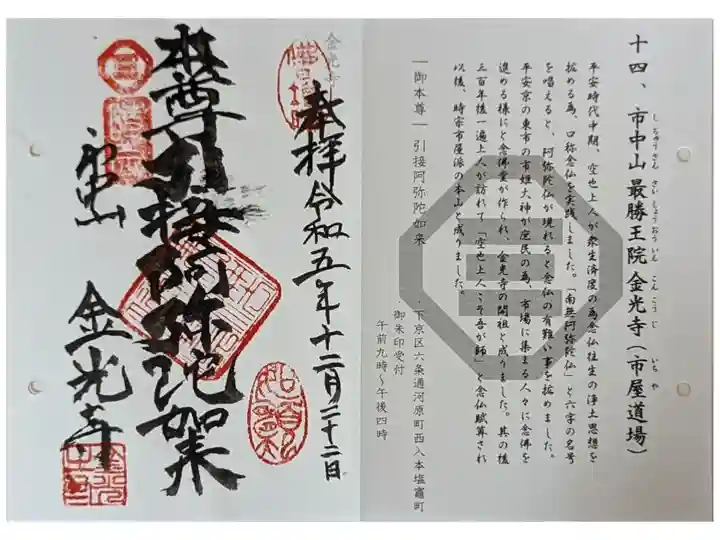 十四、市中山 最勝王院 金光寺(市屋道場)
しちゅうさん さいしょうおういん こんこうじ いちや
平安時代中期、空也上人が衆生済度の為念仏往生の浄土思想を
拡める為、口称念仏を実践しました。「南無阿弥陀仏」と六字の名号
を唱えると、阿弥陀仏が現れると念仏の有難い事を拡めました。
平安京の東市の市姫大神が庶民の為、市場に集まる人々に念佛を
進める様にと念佛堂が作られ、金光寺の開祖と成りました。其の後
三百年後一遍上人が訪れて「空也上人こそ吾が師」と念仏賦算され
以後、時宗市屋派の本山と成りました。
御本尊 引接阿弥陀如来
・下京区六条通河原町西入本塩竈町
・御朱印受付
午前九時~午後四時
金光寺
奉拝 令和五年十二月二十二日
本尊引接阿弥陀如来
市中山
金光寺